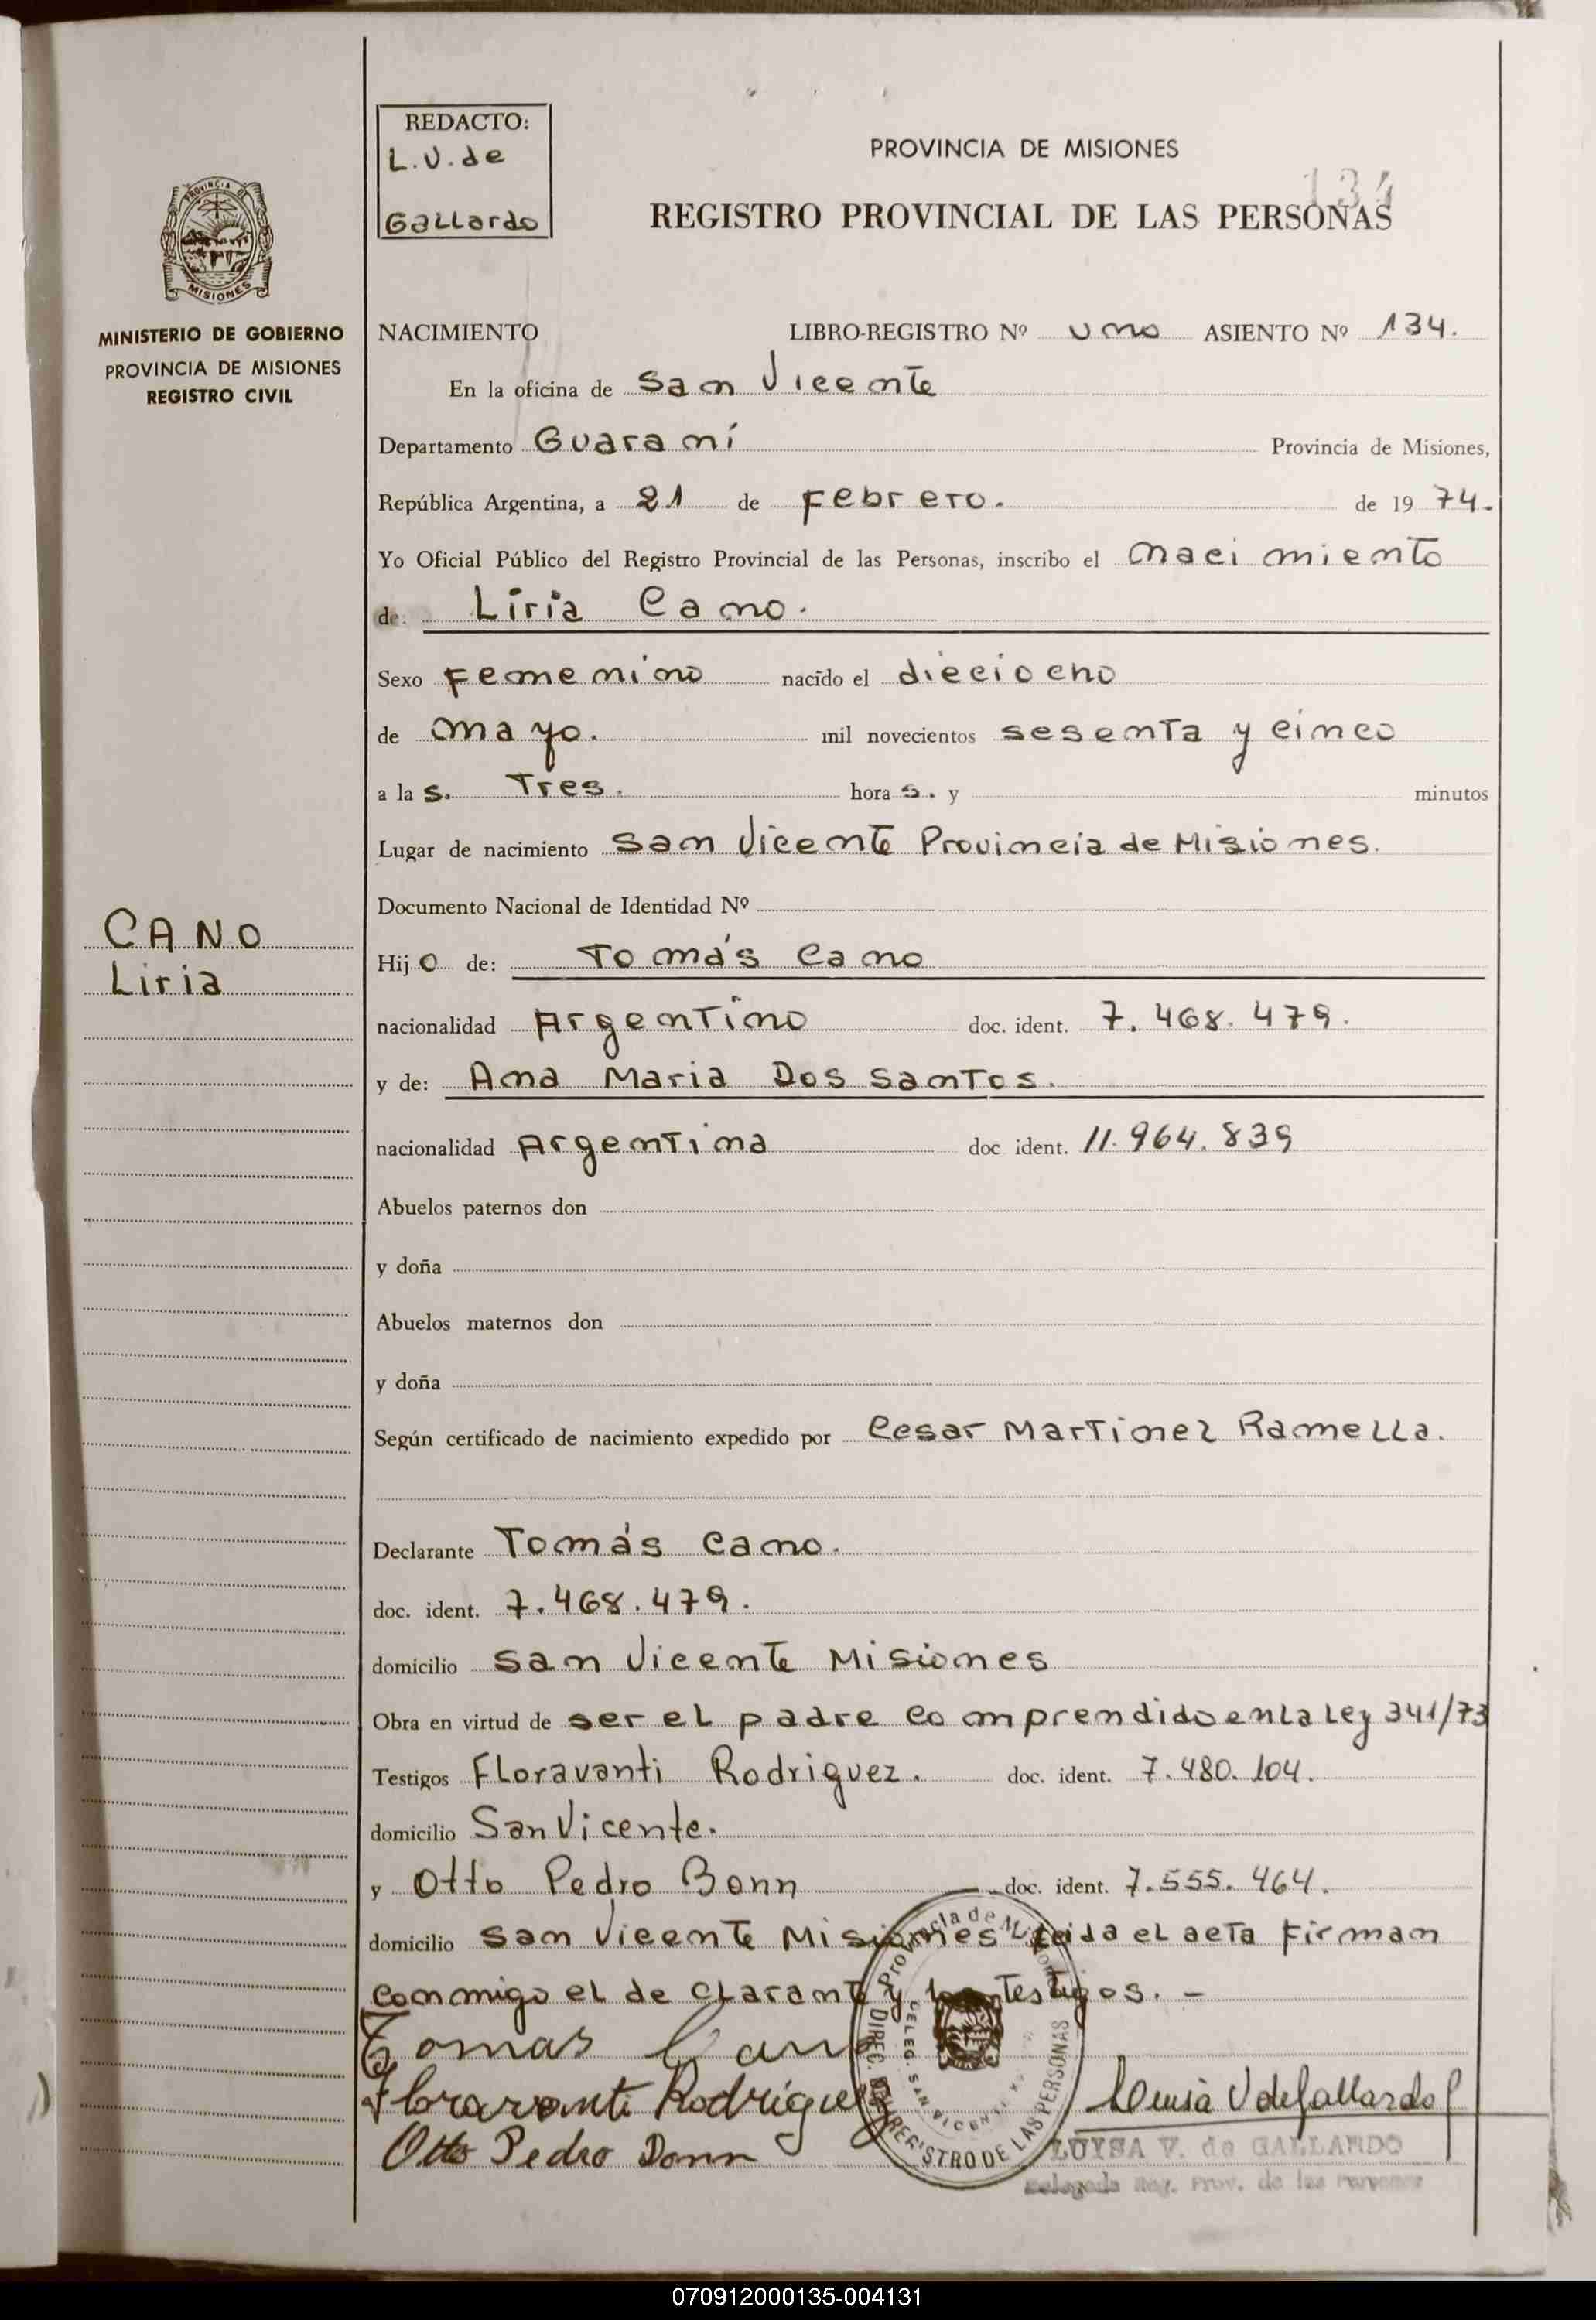 REDACTO:
L.V. de
Gallardo
PROVINCIA DE MISIONES
134
REGISTRO PROVINCIAL DE LAS PERSONAS
PROVINCIA DE
MISIONES
MINISTERIO DE GOBIERNO
PROVINCIA DE MISIONES
REGISTRO CIVIL
NACIMIENTO LIBRO-REGISTRO Nº uno ASIENTO Nº 134.
En la oficina de San Vicente
Departamento Guaraní Provincia de Misiones,
República Argentina, a 21 de Febrero. de 19 74.
Yo Oficial Público del Registro Provincial de las Personas, inscribo el nacimiento
de: Liria Cano.
Sexo Femenino nacido el dieciocho
de mayo. mil novecientos sesenta y cinco
a la s. Tres. hora s. y minutos
Lugar de nacimiento San Vicente Provincia de Misiones.
Documento Nacional de Identidad Nº
CANO
Liria
Hij o de: Tomás Cano
nacionalidad Argentino doc. ident. 7.468.479.
y de: Ana Maria Dos Santos.
nacionalidad Argentina doc. ident. 11.964.839
Abuelos paternos don
y doña
Abuelos maternos don
y doña
Según certificado de nacimiento expedido por Cesar Martinez Ramella.
Declarante Tomás Cano.
doc. ident. 7.468.479.
domicilio San Vicente Misiones
Obra en virtud de ser el padre comprendido en la Ley 341/73
Testigos Floravanti Rodriguez. doc. ident. 7.480.104.
domicilio San Vicente.
y Otto Pedro Bonn doc. ident. 7.555.464.
domicilio San Vicente Misiones Leida el acta Firman
conmigo el declarante y los testigos. -
Tomas Cano
Floravanti Rodriguez
Otto Pedro Donn
Provincia de Misiones
DIREC. DEL REGISTRO DE LAS PERSONAS
DELEG. SAN VICENTE
Luisa V de Gallardo
LUISA V. de GALLARDO
Delegada Reg. Prov. de las Personas
070912000135-004131